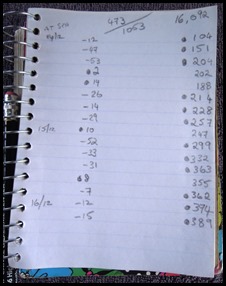 473/1053 16,092
-12 • 104
-47 • 151
-53 • 204
• 2 202
• 14 188
-26 • 214
-14 • 228
-29 • 257
15/12 • 10 247
-52 • 299
-33 • 332
-31 • 363
• 8 355
-7 • 362
16/12 -12 • 374
-15 • 389